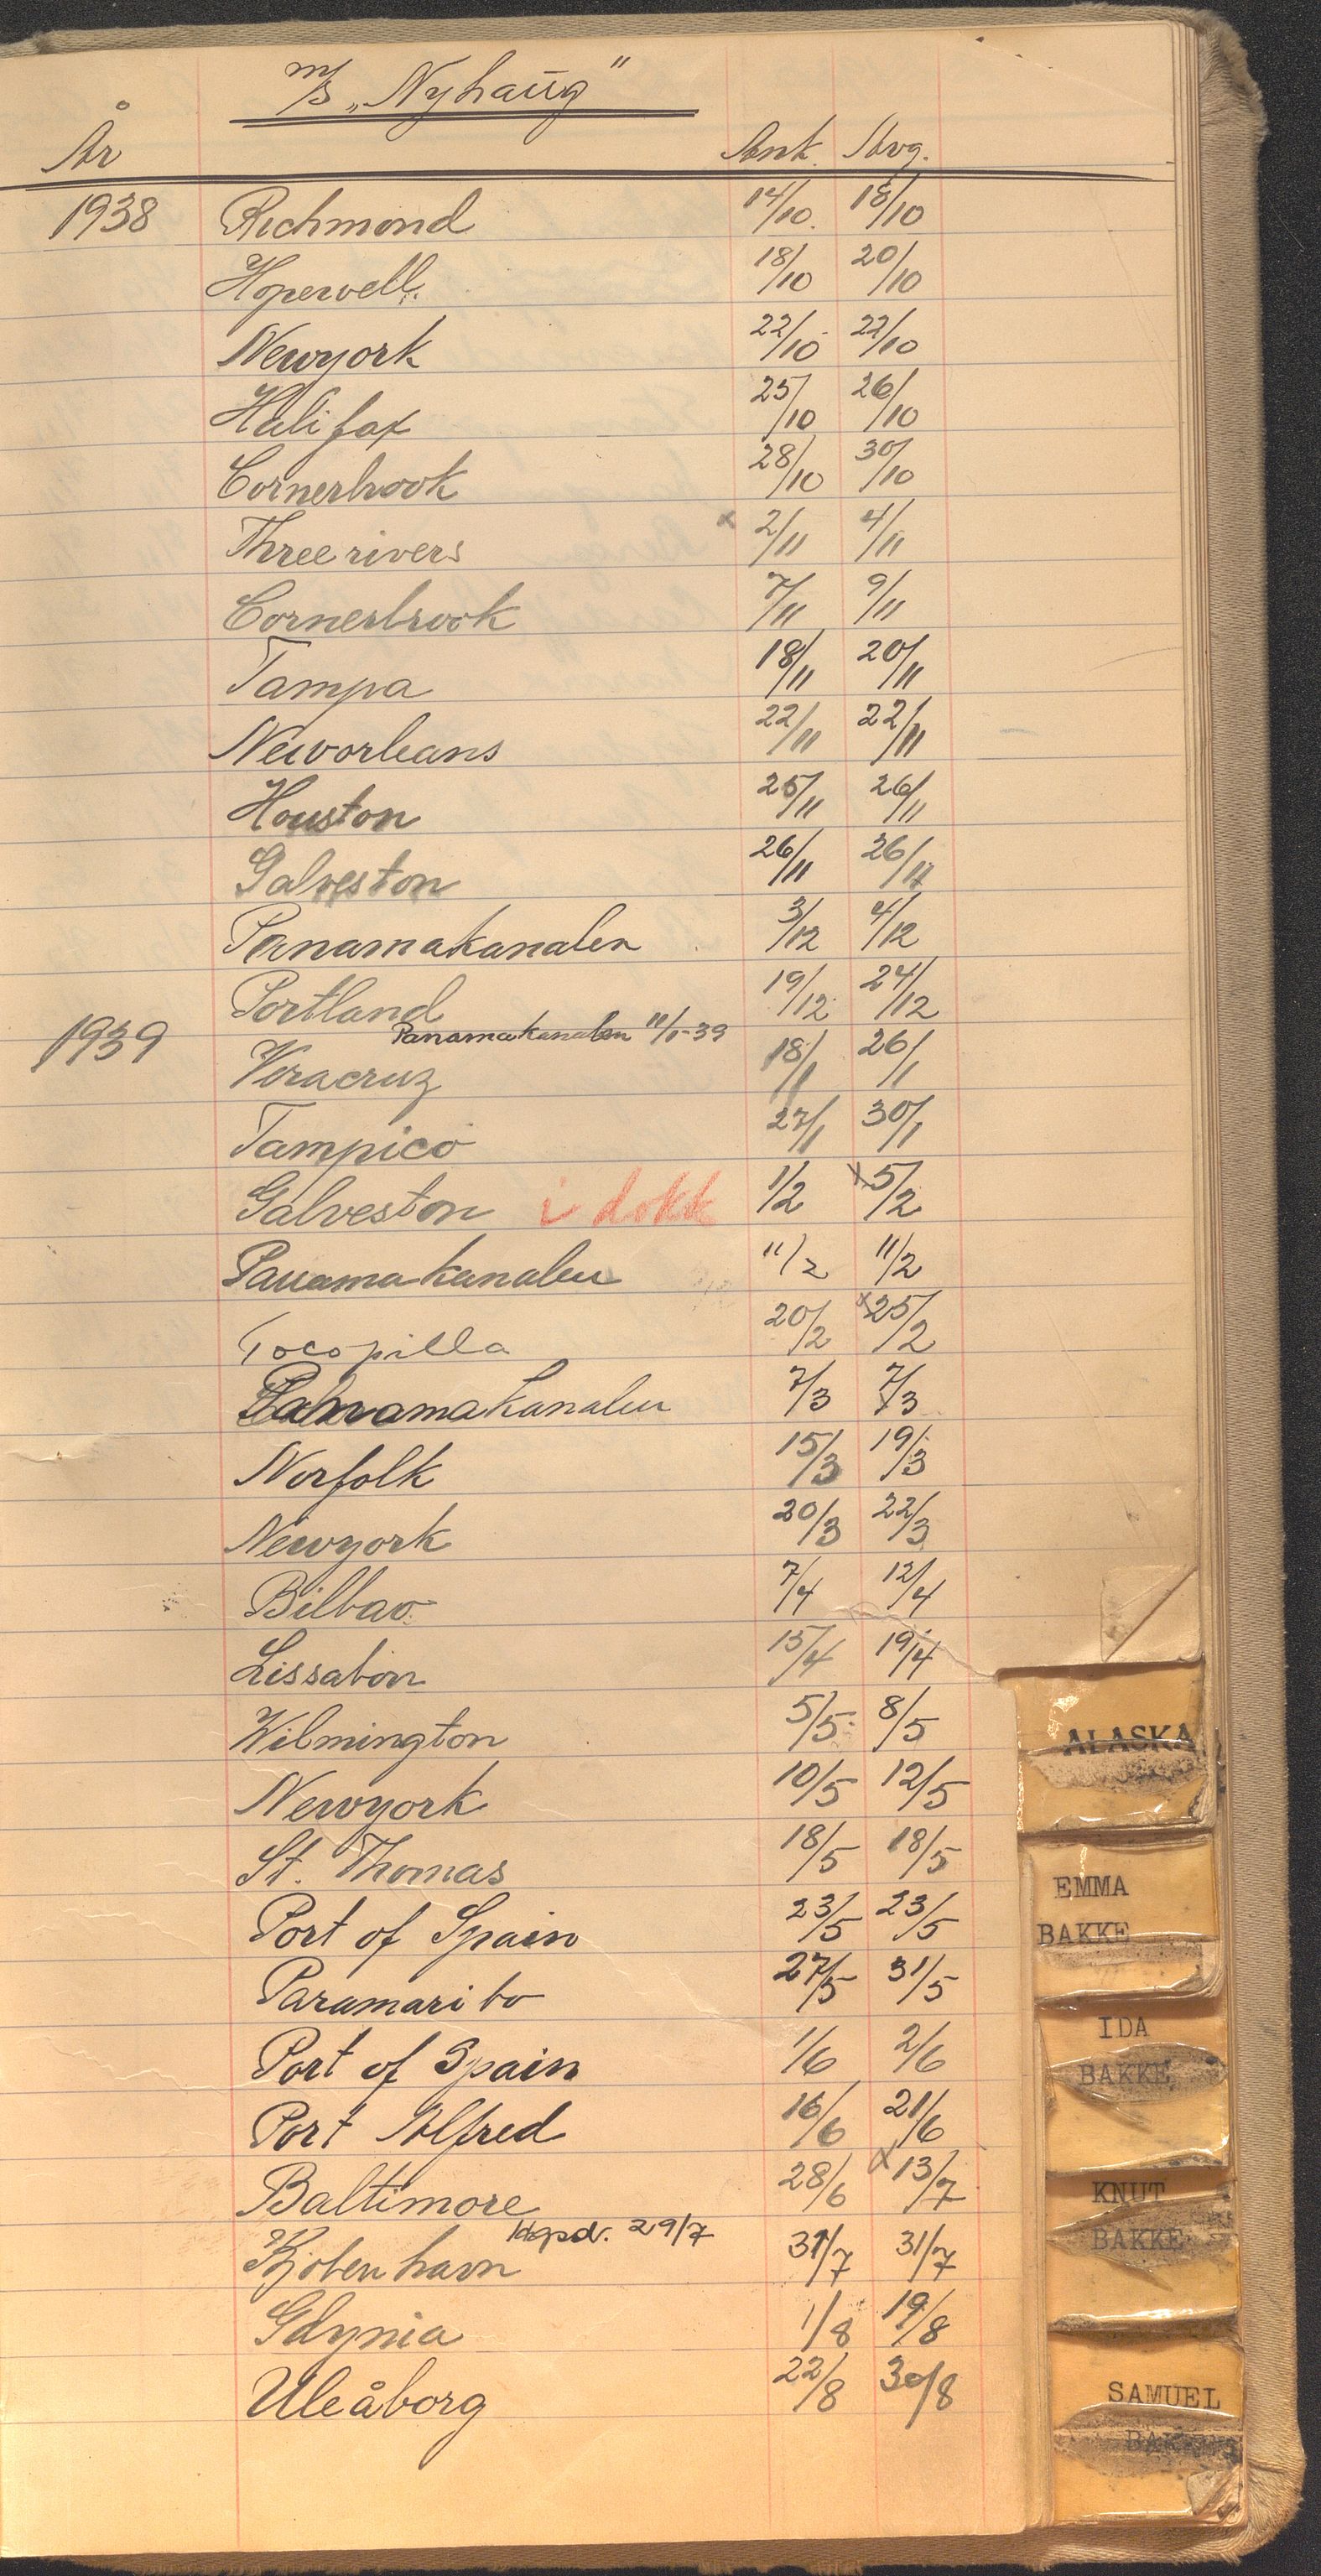 M/S „Nyhaug"
År Ank. Avg.
1938 Richmond 14/10. 18/10
Hopewell. 18/10 20/10
Newyork 22/10 22/10
Halifax 25/10 26/10
Cornerbrook 28/10 30/10
Three rivers x 2/11 4/11
Cornerbrook 7/11 9/11
Tampa 18/11 20/11
Neworleans 22/11 22/11
Houston 25/11 26/11
Galveston 26/11 26/11
Panamakanalen 3/12 4/12
Portland 19/12 24/12
Panamakanalen 11/1-39
1939 Veracruz 18/1 26/1
Tampico 27/1 30/1
Galveston i dokk 1/2 x 5/2
Panamakanalen 11/2 11/2
Tocopilla 20/2 x 25/2
Panamakanalen 7/3 7/3
Norfolk 15/3 19/3
Newyork 20/3 22/3
Bilbao 7/4 12/4
Lissabon 15/4 19/4
Wilmington 5/5 8/5
Newyork 10/5 12/5
St. Thomas 18/5 18/5
Port of Spain 23/5 23/5
Paramaribo 27/5 31/5
Port of Spain 1/6 2/6
Port Alfred 16/6 21/6
Baltimore 28/6 x 13/7
29/7
Kjøbenhavn 31/7 31/7
Gdynia 1/8 19/8
Uleåborg 22/8 30/8
ALASKA
EMMA
BAKKE
IDA
BAKKE
KNUT
BAKKE
SAMUEL
BAKKE